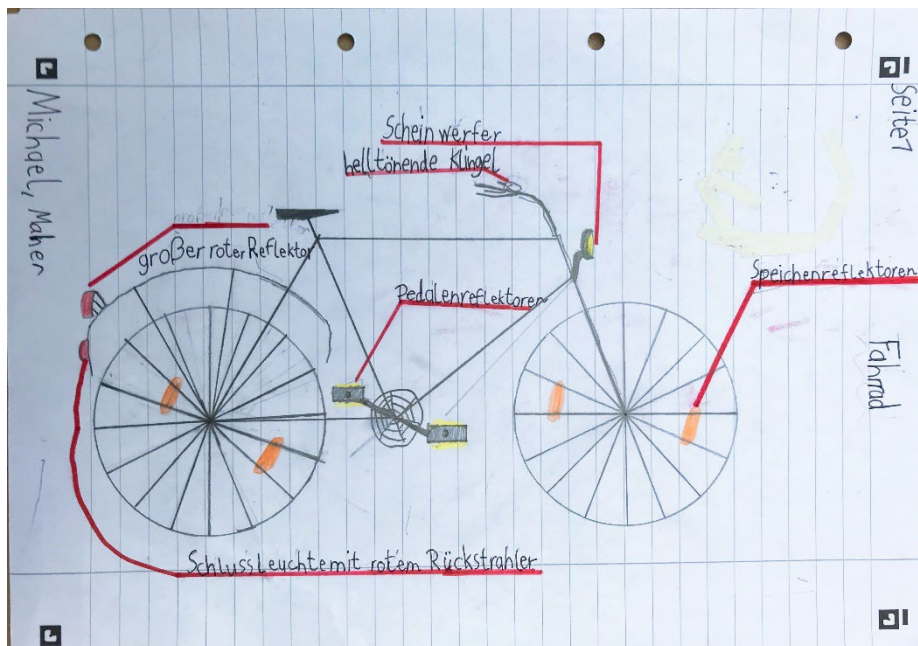 Seite 7
Michael, Maher
Fahrrad
Scheinwerfer
helltönende Klingel
großer roter Reflektor
Pedalenreflektoren
Speichenreflektoren
Schlussleuchte mit rotem Rückstrahler